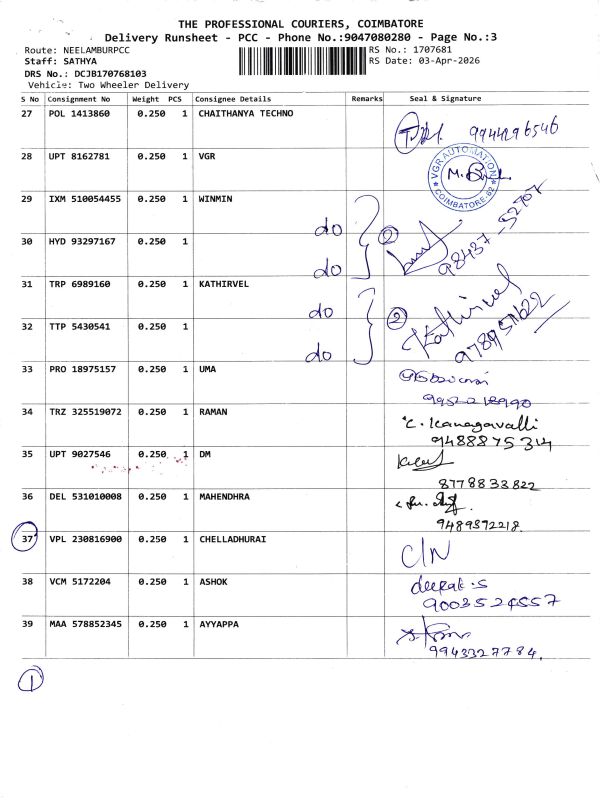 THE PROFESSIONAL COURIERS, COIMBATORE
Delivery Runsheet - PCC - Phone No.:9047080280 - Page No.:3
Route: NEELAMBURPCC RS No.: 1707681
Staff: SATHYA RS Date: 03-Apr-2026
DRS No.: DCJB170768103
Vehicle: Two Wheeler Delivery
S No Consignment No Weight PCS Consignee Details Remarks Seal & Signature
27 POL 1413860 0.250 1 CHAITHANYA TECHNO 9944296546
28 UPT 8162781 0.250 1 VGR
VGR AUTOMATION
COIMBATORE-62
29 IXM 510054455 0.250 1 WINMIN
do
2
98437-52707
30 HYD 93297167 0.250 1
do
31 TRP 6989160 0.250 1 KATHIRVEL
do
2
Kathirvel
32 TTP 5430541 0.250 1
do
33 PRO 18975157 0.250 1 UMA
34 TRZ 325519072 0.250 1 RAMAN
C. Kanagavalli
35 UPT 9027546 0.250 1 DM
8778833822
36 DEL 531010008 0.250 1 MAHENDHRA
9489372218
37 VPL 230816900 0.250 1 CHELLADHURAI C/N
38 VCM 5172204 0.250 1 ASHOK deepak.s
9003524557
39 MAA 578852345 0.250 1 AYYAPPA
9943327784.
1